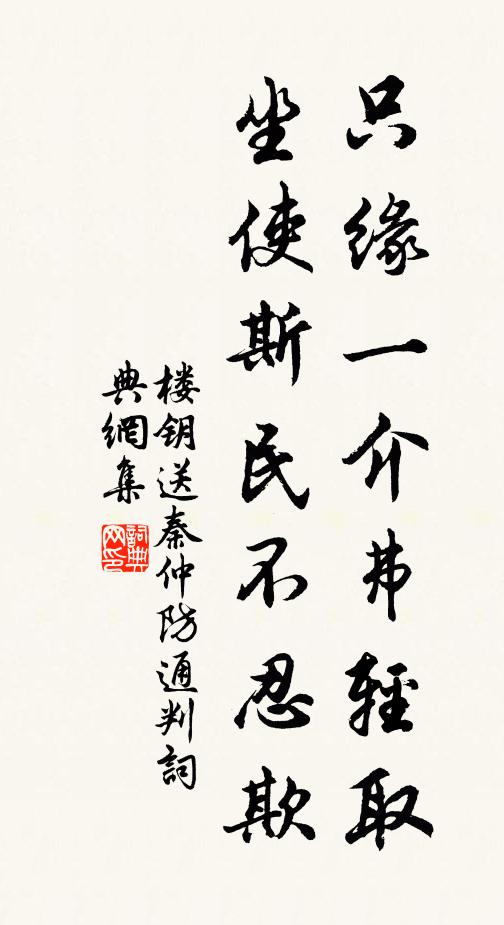 只緣一介弗輕取
坐使斯民不忍欺
楼钥送秦仲防通判詞
典網集
詞典
网印